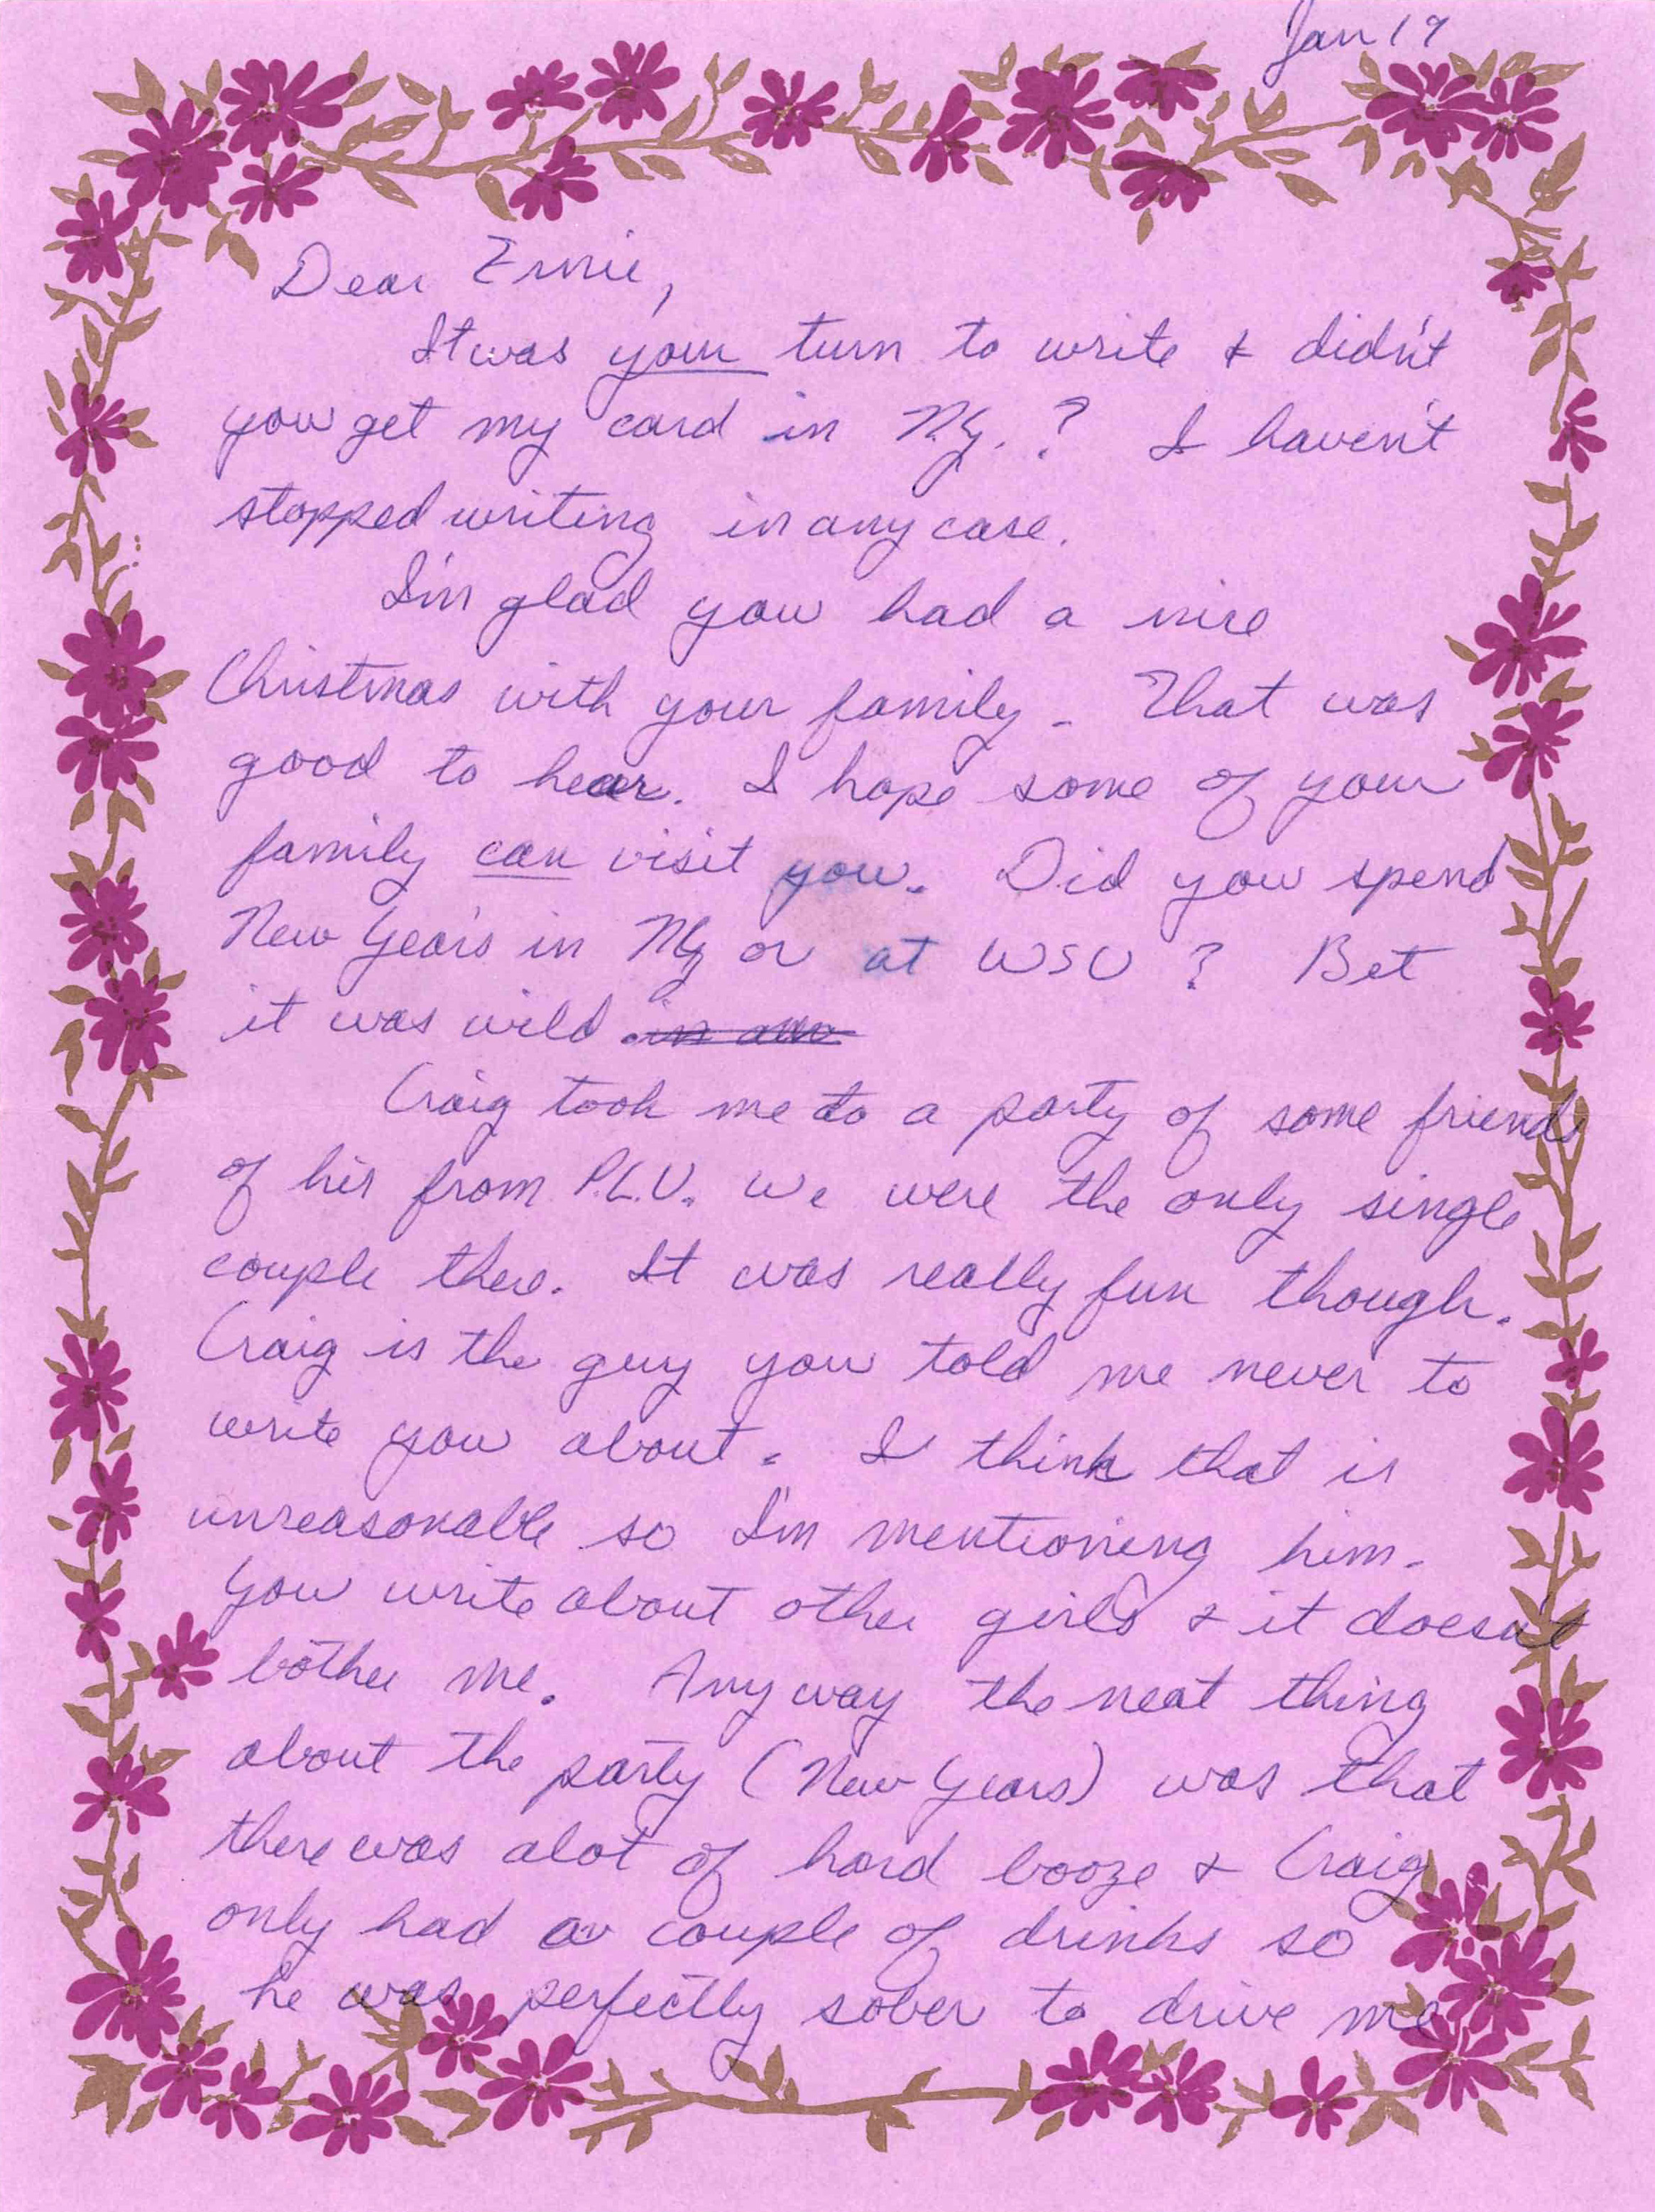 Jan 19
Dear Ernie,
It was your turn to write & didn't
you get my card in N.Y. ? I haven't
stopped writing in any case.
I'm glad you had a nice
Christmas with your family. That was
good to hear. I hope some of your
family can visit you. Did you spend
New Year's in NY or at WSU ? Bet
it was wild.
Craig took me to a party of some friends
of his from P.L.U. We were the only single
couple there. It was really fun though.
Craig is the guy you told me never to
write you about. I think that is
unreasonable so I'm mentioning him.
You write about other girls & it doesn't
bother me. Anyway the neat thing
about the party (New Years) was that
there was alot of hard booze & Craig
only had a couple of drinks so
he was perfectly sober to drive me